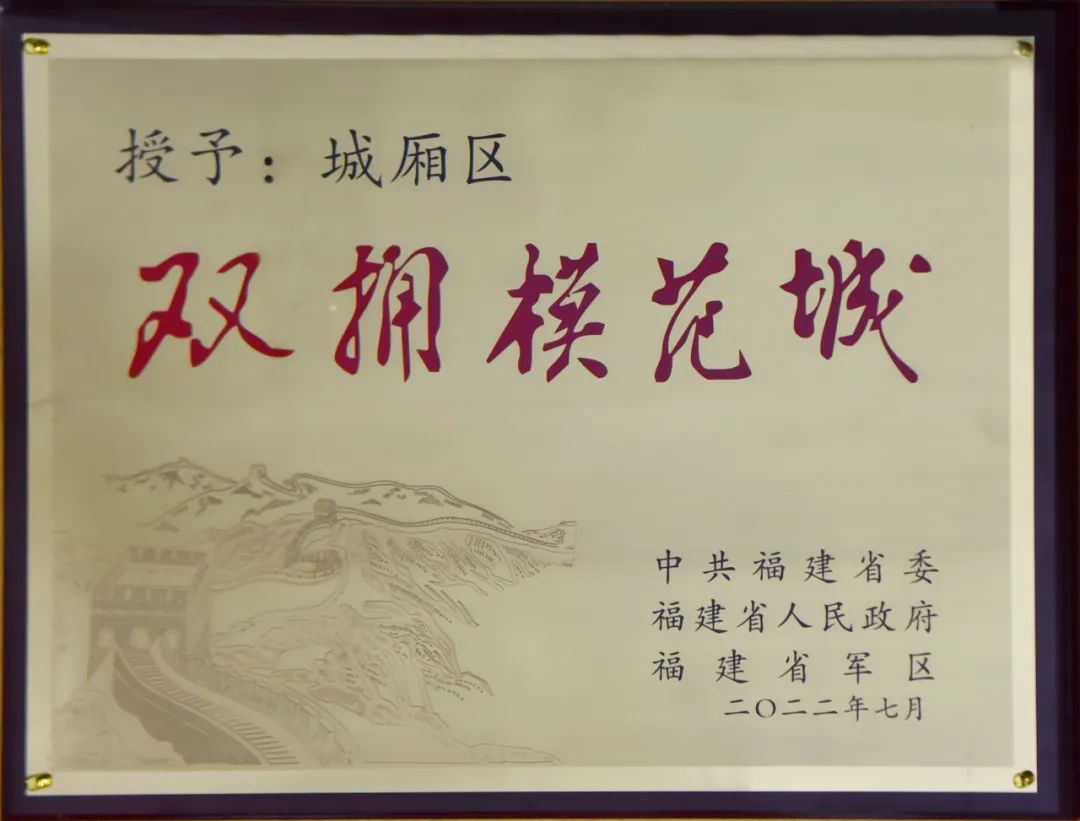 授予：城厢区
双拥模范城
中共福建省委
福建省人民政府
福建省军区
二〇二二年七月